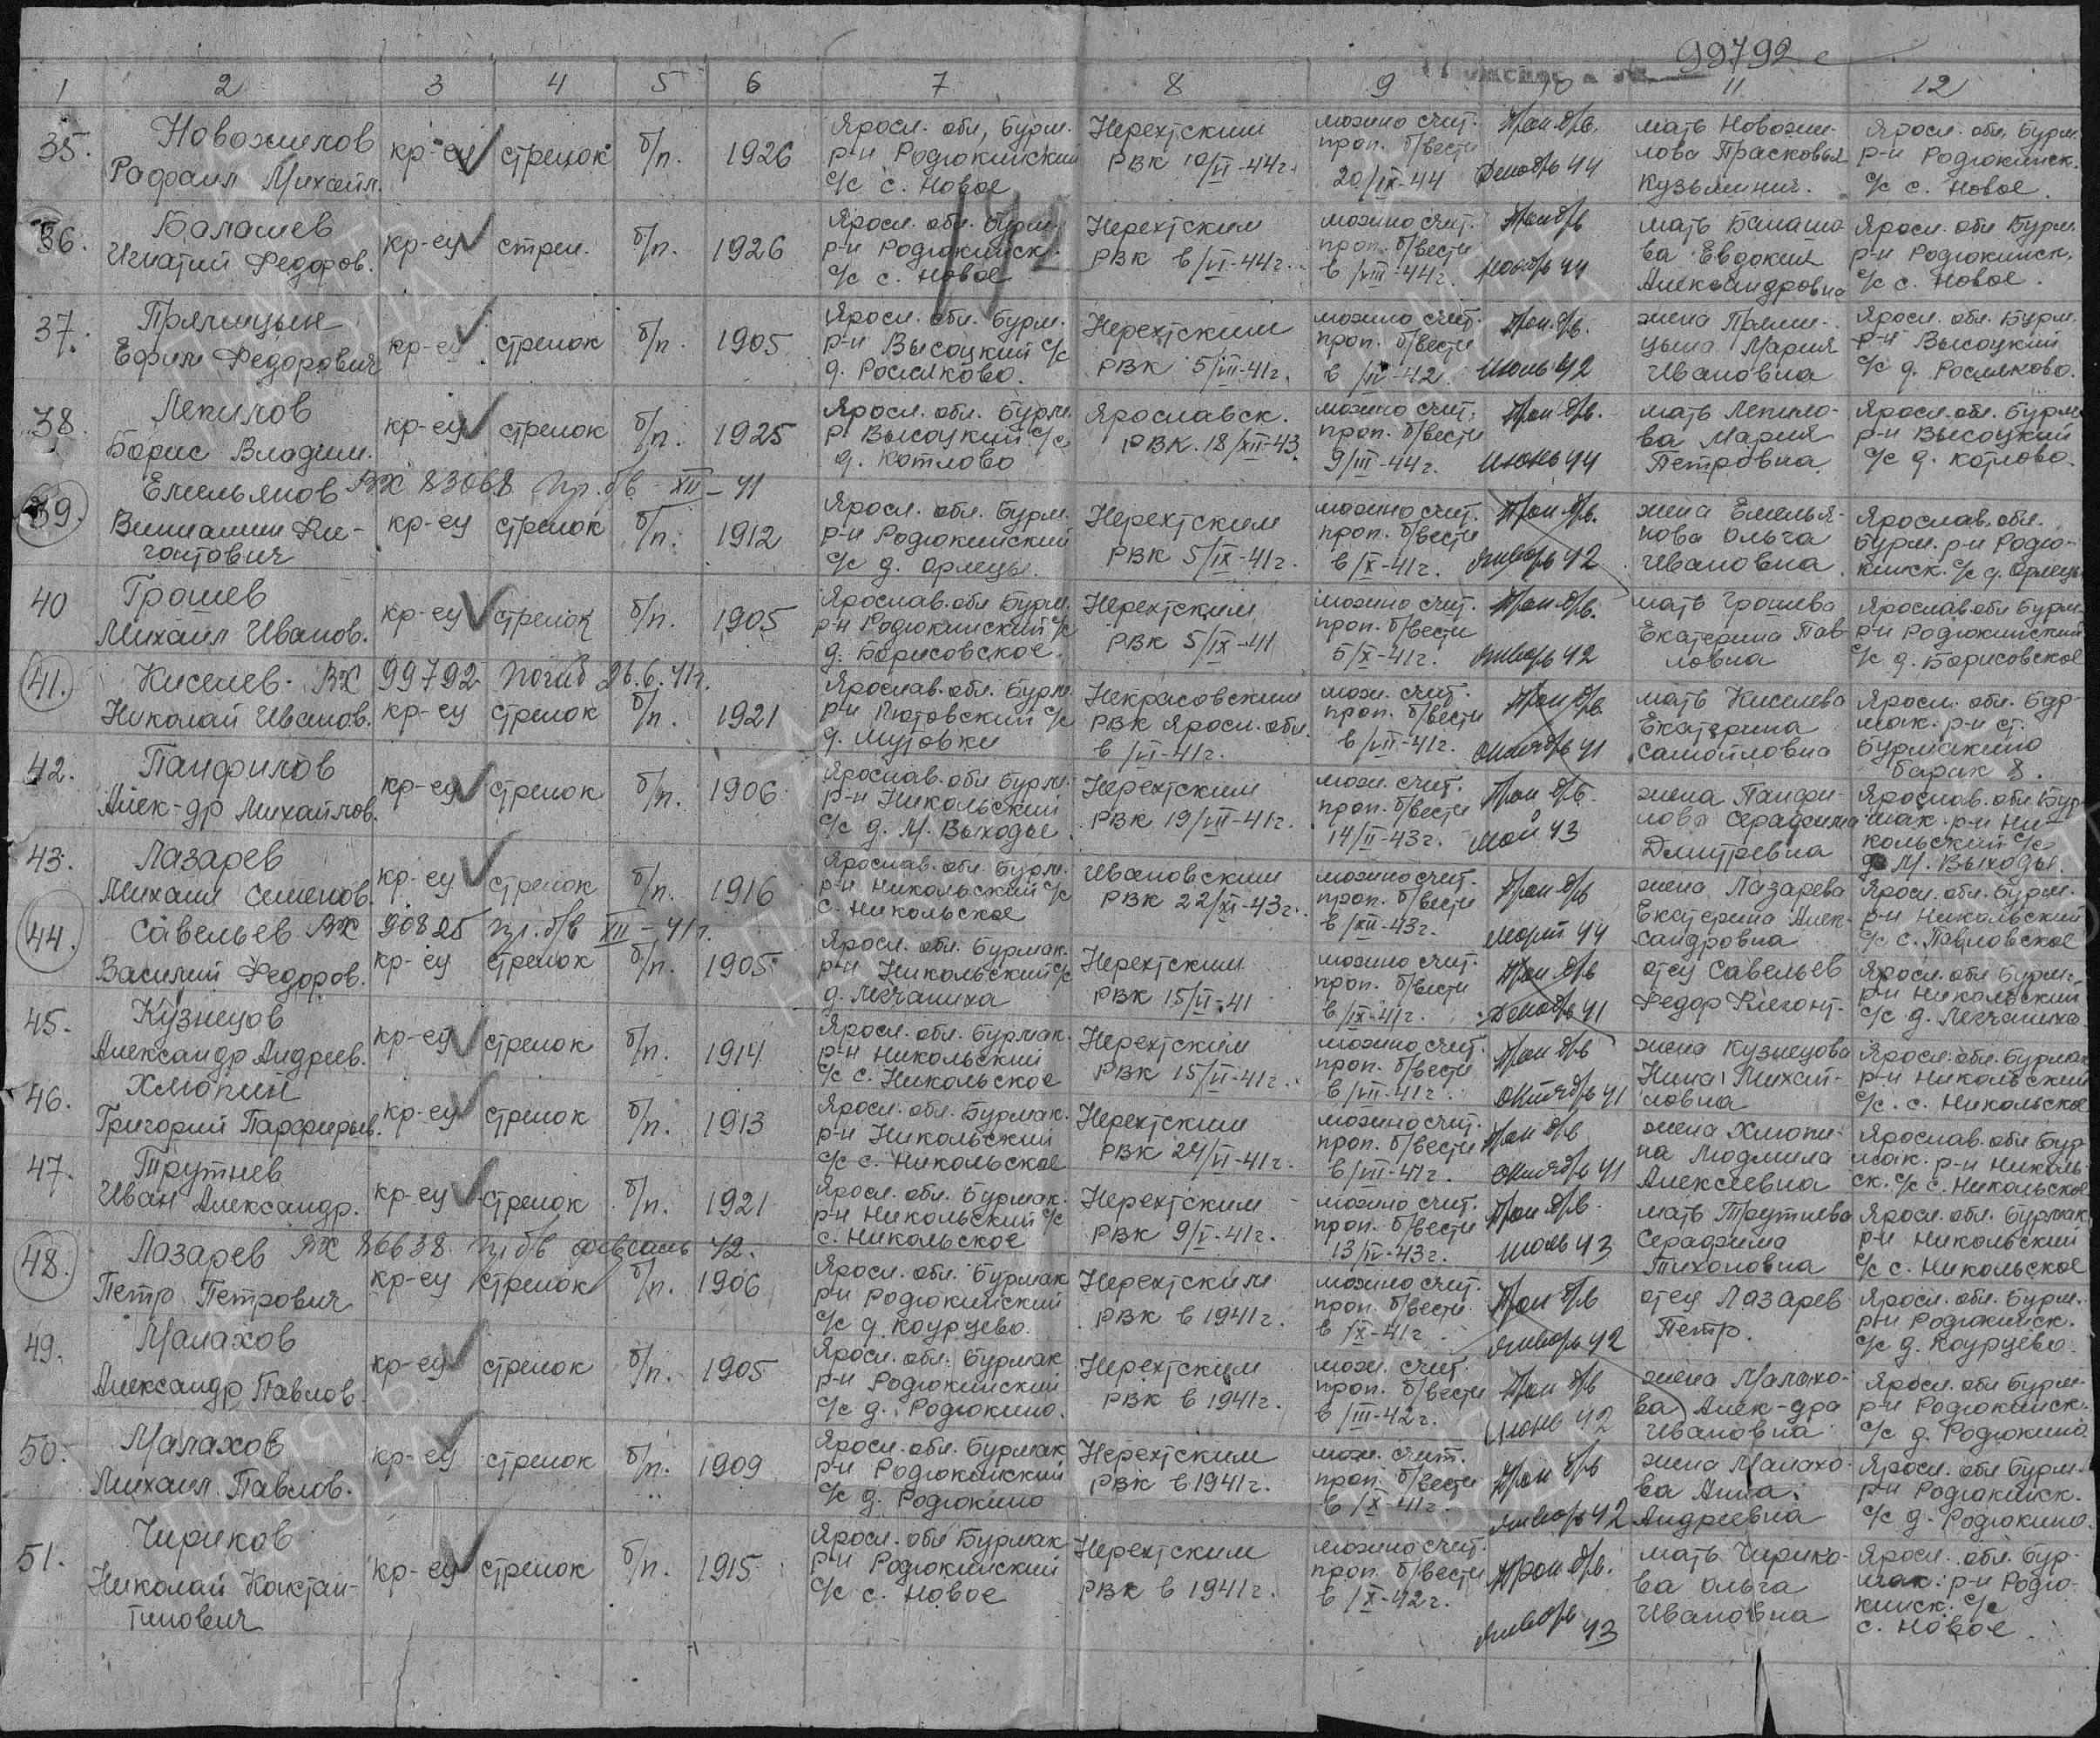 99792 с
1 2 3 4 5 6 7 8 9 10 11 12
35. Новожилов
Рафаил Михайл.
кр-ец стрелок б/п. 1926
Яросл. обл, Бурм.
р-н Родюкинский
с/с с. Новое
Нерехтским
РВК 10/VI-44г.
можно счит.
проп. б/вести
20/IX-44
Проп. б/в.
декабрь 44
мать Новожи-
лова Прасковья
Кузьминич.
Яросл. обл, Бурм.
р-н Родюкинск.
с/с с. Новое.
36. Балашев
Игнатий Федоров.
кр-ец стрел. б/п. 1926
Яросл. обл. Бурм.
р-н Родюкинск.
с/с с. Новое
Нерехтским
РВК в/VI-44г.
можно счит.
проп. б/вести
в/VIII-44г.
Проп б/в
ноябрь 44
мать Балаше
ва Евдокия
Александровна
Яросл. обл Бурм.
р-н Родюкинск.
с/с с. Новое.
37. Прямицын
Ефим Федорович
кр-ец стрелок б/п. 1905
Яросл. обл. Бурм.
р-н Высоцкий с/с
д. Росляково.
Нерехтским
РВК 5/VIII-41г.
можно счит.
проп. б/вести
в/IV-42.
Проп. б/в.
июль 42
жена Прями-
цына Мария
Ивановна
Яросл. обл. Бурм.
р-н Высоцкий
с/с д. Росляково.
38. Лепилов
Борис Владим.
кр-ец стрелок б/п. 1925
Яросл. обл. Бурм.
р. Высоцкий с/с
д. Котлово
Ярославск.
РВК. 18/XII-43.
можно счит.
проп. б/вести
9/III-44г.
Проп. б/в.
июнь 44
мать Лепило-
ва Мария
Петровна
Яросл. обл. Бурм
р-н Высоцкий
с/с д. Котлово.
39. Емельянов ВХ 83068 Пр. б/в XII-41
Вениамин Фи-
гонтович
кр-ец стрелок б/п. 1912
Яросл. обл. Бурм.
р-н Родюкинский
с/с д. Орлецы.
Нерехтским
РВК 5/IX-41г.
можно счит.
проп. б/вести
в/X-41г.
Проп б/в.
январь 42
жена Емелья-
нова Ольга
Ивановна
Ярослав. обл.
Бурм. р-н Родю-
кинск. с/с д. Орлецы
40 Грошев
Михаил Иванов.
кр-ец стрелок б/п. 1905
Ярослав. обл Бурм.
р-н Родюкинский с/с
д. Борисовское.
Нерехтским
РВК 5/IX-41
можно счит.
проп. б/вести
5/X-41г.
Проп б/в.
январь 42
мать Грошева
Екатерина Пав
ловна
Ярослав. обл Бурм.
р-н Родюкинский
с/с д. Борисовское
41. Киселев. ВХ 99792 погиб 26.6.41г.
Николай Иванов.
кр-ец стрелок б/п. 1921
Ярослав. обл. Бурм.
р-н Лютовский с/с
д. Мутовки
Некрасовским
РВК Яросл. обл.
в/VI-41г.
мож. счит.
проп. б/вести
в/VII-41г.
Проп б/в.
октябрь 41
мать Киселева
Екатерина
Самойловна
Яросл. обл. Бур-
мак. р-н ст.
Бурмакино
барак 8.
42. Панфилов
Алек-др Михайлов.
кр-ец стрелок б/п. 1906
Ярослав. обл Бурм.
р-н Никольский
с/с д. М. Выходы.
Нерехтским
РВК 19/VIII-41г.
мож. счит.
проп. б/вести
14/II-43г.
Проп б/в.
май 43
жена Панфи-
лова Серафима
Дмитревна
Ярослав. обл Бур-
мак. р-н Ни-
кольский с/с
д. М. Выходы.
43. Лазарев
Михаил Семенов.
кр-ец стрелок б/п. 1916
Ярослав. обл. Бурм.
р-н Никольский с/с
с. Никольское
Ивановским
РВК 22/XI-43г.
можно счит.
проп. б/вести
в/XII-43г.
Проп б/в
март 44
жена Лазарева
Екатерина Алек-
сандровна
Яросл. обл. Бурм.
р-н Никольский
с/с с. Павловское
44. Савельев ВХ 90825 пр. б/в XII-41г.
Василий Федоров.
кр-ец стрелок б/п. 1905
Яросл. обл. Бурмак.
р-н Никольский с/с
д. Легчаниха
Нерехтским
РВК 15/VI-41
можно счит.
проп. б/вести
в/IX-41г.
Проп б/в
декабрь 41
отец Савельев
Федор
Яросл. обл Бурм.
р-н Никольский
с/с д. Легчаниха
45. Кузнецов
Александр Андреев.
кр-ец стрелок б/п. 1914
Яросл. обл. Бурмак.
р-н Никольский
с/с с. Никольское
Нерехтским
РВК 15/VI-41г.
можно счит.
проп. б/вести
в/VII-41г.
Проп б/в
октябрь 41
жена Кузнецова
Нина Михай-
ловна
Яросл. обл. Бурмак
р-н Никольский
с/с. с. Никольское
46. Хлюпин
Григорий Парфирьев.
кр-ец стрелок б/п. 1913
Яросл. обл. Бурмак.
р-н Никольский
с/с с. Никольское
Нерехтским
РВК 24/VI-41г.
можно счит.
проп. б/вести
в/VII-41г.
Проп б/в
октябрь 41
жена Хлюпи-
на Людмила
Алексеевна
Ярослав. обл Бур
мак. р-н Николь
ск. с/с с. Никольское
47. Трутнев
Иван Александр.
кр-ец стрелок б/п. 1921
Яросл. обл. Бурмак.
р-н Никольский с/с
с. Никольское
Нерехтским
РВК 9/V-41г.
можно счит.
проп. б/вести
13/IV-43г.
Проп б/в.
июль 43
мать Трутнева
Серафима
Тихоновна
Яросл. обл. Бурмак
р-н Никольский
с/с с. Никольское
48. Лазарев ВХ 86638 пр б/в февраль 42.
Петр Петрович
кр-ец стрелок б/п. 1906
Яросл. обл. Бурмак
р-н Родюкинский
с/с д. Коурцево.
Нерехтским
РВК в 1941г.
можно счит.
проп. б/вести
в/X-41г
Проп б/в
январь 42
отец Лазарев
Петр.
Яросл. обл. Бурм.
р-н Родюкинск.
с/с д. Коурцево.
49. Малахов
Александр Павлов.
кр-ец стрелок б/п. 1905
Яросл. обл. Бурмак
р-н Родюкинский
с/с д. Родюкино.
Нерехтским
РВК в 1941г.
мож. счит.
проп. б/вести
в/III-42г.
Проп б/в
июнь 42
жена Малахо-
ва Алек-дра
Ивановна
Яросл. обл Бурм.
р-н Родюкинск.
с/с д. Родюкино
50. Малахов
Михаил Павлов.
кр-ец стрелок б/п. 1909
Яросл. обл. Бурмак
р-н Родюкинский
с/с д. Родюкино
Нерехтским
РВК в 1941г.
мож. счит.
проп. б/вести
в/X-41г.
Проп б/в
январь 42
жена Малахо-
ва Анна
Андреевна
Яросл. обл Бурм.
р-н Родюкинск.
с/с д. Родюкино.
51. Чириков
Николай Констан-
тинович
кр-ец стрелок б/п. 1915
Яросл. обл Бурмак
р-н Родюкинский
с/с с. Новое
Нерехтским
РВК в 1941г.
можно счит.
проп. б/вести
в/X-42г.
Проп б/в.
январь 43
мать Чирико-
ва Ольга
Ивановна
Яросл. обл. Бур-
мак. р-н Родю-
кинск. с/с
с. Новое